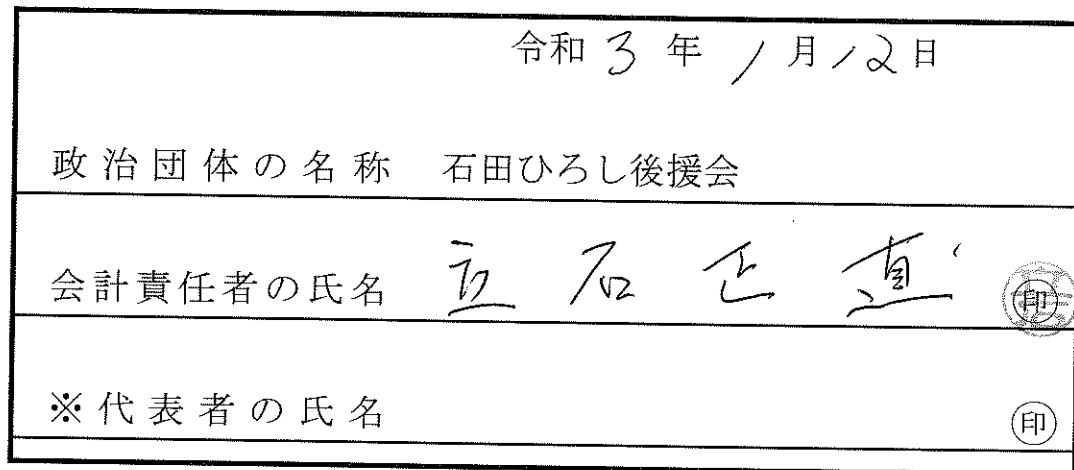 令和 3 年 1 月 12 日
政治団体の名称 石田ひろし後援会
会計責任者の氏名 立石正直 印
※代表者の氏名 印